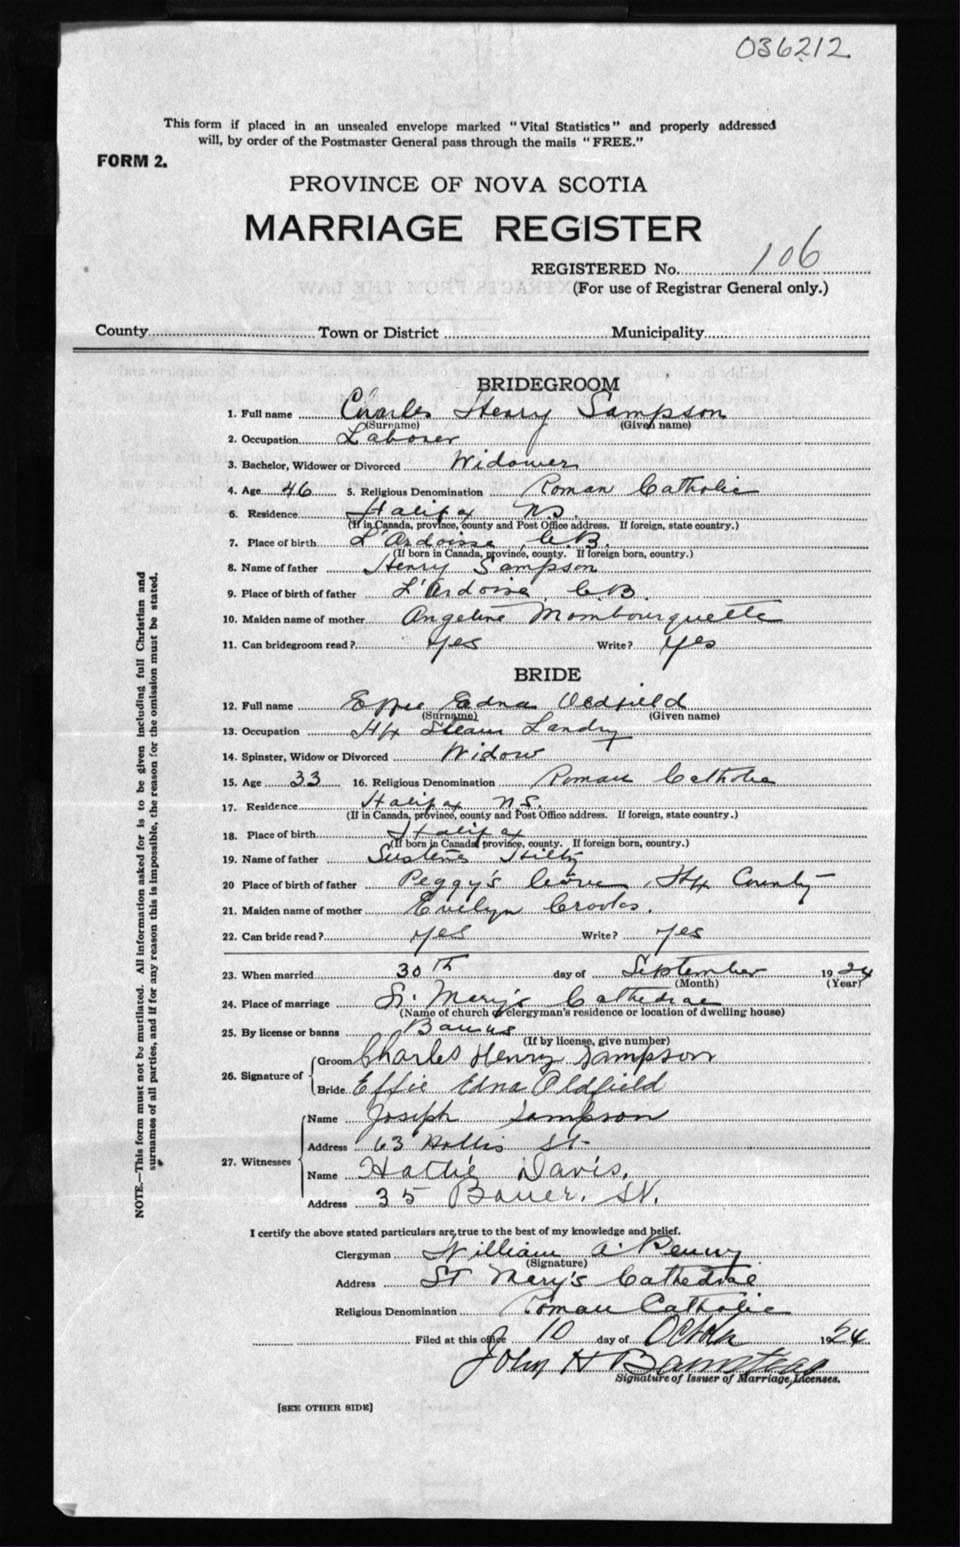 036212
This form if placed in an unsealed envelope marked "Vital Statistics" and properly addressed
will, by order of the Postmaster General pass through the mails "FREE."
FORM 2.
PROVINCE OF NOVA SCOTIA
MARRIAGE REGISTER
REGISTERED No. 106
(For use of Registrar General only.)
County Town or District Municipality
BRIDEGROOM
1. Full name Charles Henry Sampson
(Surname) (Given name)
2. Occupation Laborer
3. Bachelor, Widower or Divorced Widower
4. Age 46 5. Religious Denomination Roman Catholic
6. Residence Halifax N.S.
(If in Canada, province, county and Post Office address. If foreign, state country.)
7. Place of birth L'Ardoisse, C.B.
(If born in Canada, province, county. If foreign born, country.)
8. Name of father Henry Sampson
9. Place of birth of father L'Ardoise, C.B.
10. Maiden name of mother Angeline Mombourquette
11. Can bridegroom read? Yes Write? Yes
BRIDE
12. Full name Effie Edna Oldfield
(Surname) (Given name)
13. Occupation Hfx Steam Landry
14. Spinster, Widow or Divorced Widow
15. Age 33 16. Religious Denomination Roman Catholic
17. Residence Halifax N.S.
(If in Canada, province, county and Post Office address. If foreign, state country.)
18. Place of birth Halifax
(If born in Canada province, county. If foreign born, country.)
19. Name of father Hiltz
20 Place of birth of father Peggy's Cove, Hfx County
21. Maiden name of mother Evelyn Crooks.
22. Can bride read? Yes Write? Yes
23. When married 30th day of September 1924
(Month) (Year)
24. Place of marriage St. Mary's Cathedral
(Name of church or clergyman's residence or location of dwelling house)
25. By license or banns Banns
(If by license, give number)
26. Signature of Groom Charles Henry Sampson
Bride Effie Edna Oldfield
27. Witnesses Name Joseph Sampson
Address 63 Hollis St-
Name Hattie Davis.
Address 35 Bauer. St.
I certify the above stated particulars are true to the best of my knowledge and belief.
Clergyman William A. Penny
(Signature)
Address St Mary's Cathedral
Religious Denomination Roman Catholic
Filed at this office 10 day of 1924
John H
Signature of Issuer of Marriage Licenses.
[SEE OTHER SIDE]
NOTE.—This form must not be mutilated. All information asked for is to be given including full Christian and
surnames of all parties, and if for any reason this is impossible, the reason for the omission must be stated.